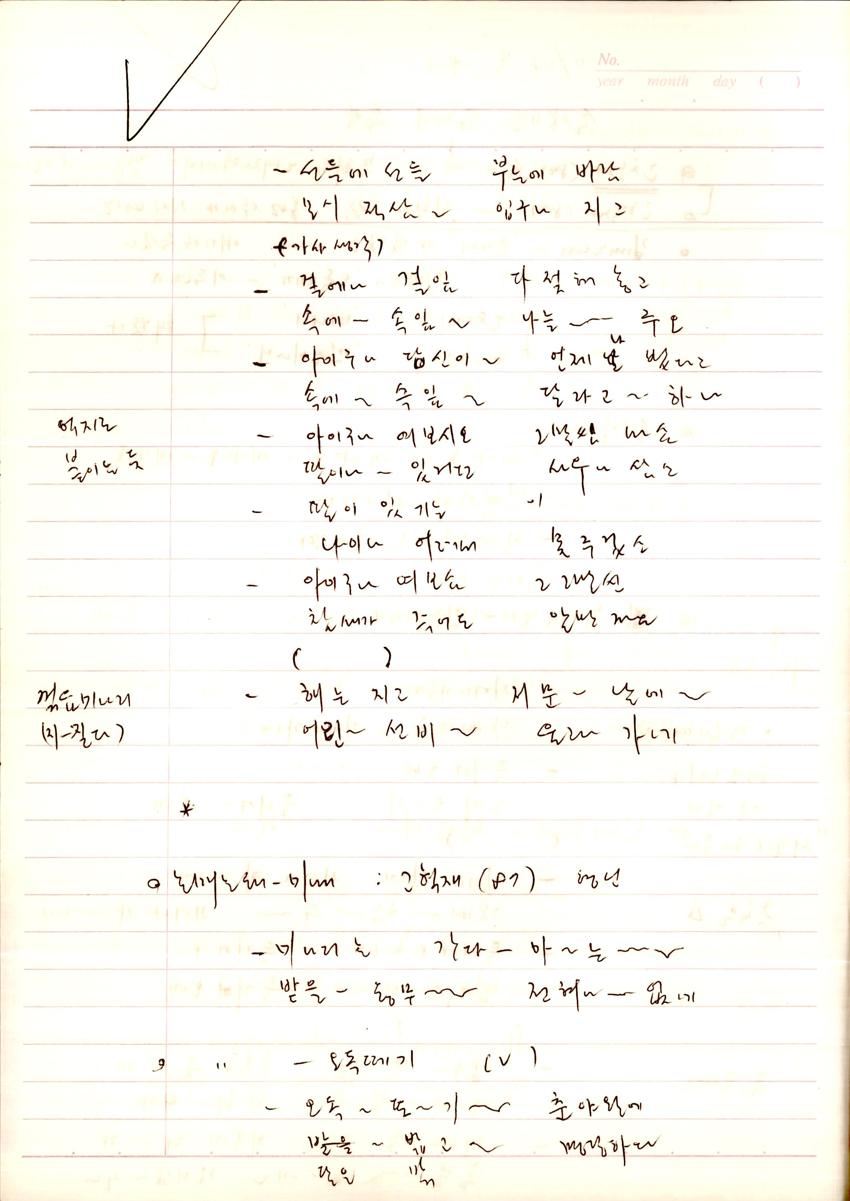 No.
year month day ( )
- 선들에 선들 부는에 바람
모시 적삼~ 입구나 지고
(가사 생략)
- 겉에나 겉잎 다 젖혀 놓고
속에- 속잎~ 나를~ 주오
- 아이구나 답신이~ 언제 나 봤다고
속에~ 속잎~ 달라고~ 하나
억지로
붙이는 듯
- 아이구나 여보시오 그 말씀 마소
딸이나- 있거던 사우나 삼소
- 딸이 있기는 이
나이나 어려서 못 주겠소
- 아이구나 여보소 그 말씀
참새가 작어도 알만 까요
( )
미나리
(자-진다)
- 해는 지고 저문~ 날에~
어린~ 선비~ 울라 가나
*
o 논매는 : 고학재 (87)
- 미나리는 간다- 마~는~~
받을- 동무~~ 전혀나- 없네
〃 - 오독떼기 (V)
- 오독~또~기~ 춘야월에
달은~ 밝고~ 명랑하다
달은 밝